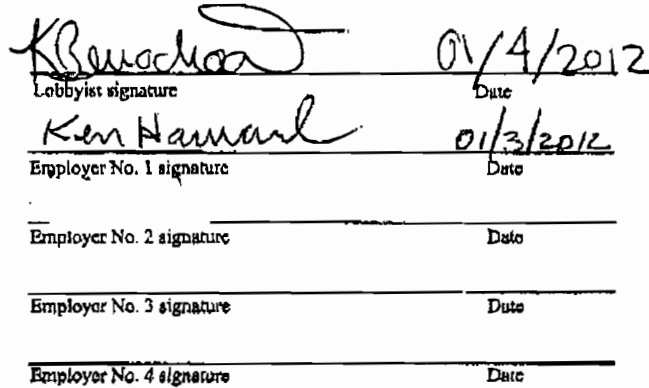 01/4/2012
Lobbyist signature Date
Ken 01/3/2012
Employer No. 1 signature Date
Employer No. 2 signature Date
Employer No. 3 signature Date
Employer No. 4 signature Date